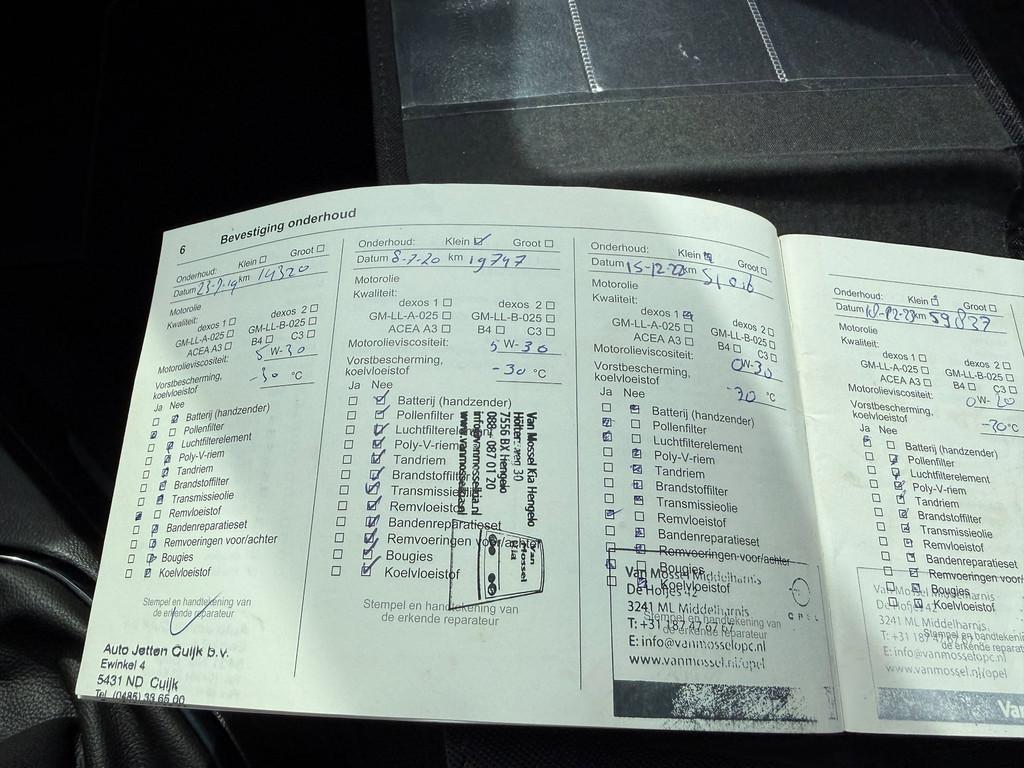 6 Bevestiging onderhoud
Onderhoud: Klein Groot
Datum 23-7-19 km 14320
Motorolie
Kwaliteit:
dexos 1 dexos 2
GM-LL-A-025 GM-LL-B-025
ACEA A3 B4 C3
Motorolieviscositeit: 5W-30
Vorstbescherming,
koelvloeistof -30 °C
Ja Nee
Batterij (handzender)
Pollenfilter
Luchtfilterelement
Poly-V-riem
Tandriem
Brandstoffilter
Transmissieolie
Remvloeistof
Bandenreparatieset
Remvoeringen voor/achter
Bougies
Koelvloeistof
Stempel en handtekening van
de erkende reparateur
Auto Jetten Cuijk b.v.
Ewinkel 4
5431 ND Cuijk
Tel. (0485) 33 65 00
Onderhoud: Klein Groot
Datum 8-7-20 km 19747
Motorolie
Kwaliteit:
dexos 1 dexos 2
GM-LL-A-025 GM-LL-B-025
ACEA A3 B4 C3
Motorolieviscositeit: 5W-30
Vorstbescherming,
koelvloeistof -30 °C
Ja Nee
Batterij (handzender)
Pollenfilter
Luchtfilterelement
Poly-V-riem
Tandriem
Brandstoffilter
Transmissieolie
Remvloeistof
Bandenreparatieset
Remvoeringen voor/achter
Bougies
Koelvloeistof
Stempel en handtekening van
de erkende reparateur
Van Mossel Kia Hengelo
30
7556 BV Hengelo
088 - 087 01 20
Van
Mossel
Kia
Onderhoud: Klein Groot
Datum 15-12-22 km
Motorolie
Kwaliteit:
dexos 1 dexos 2
GM-LL-A-025 GM-LL-B-025
ACEA A3 B4 C3
Motorolieviscositeit: 0W-30
Vorstbescherming,
koelvloeistof -30 °C
Ja Nee
Batterij (handzender)
Pollenfilter
Luchtfilterelement
Poly-V-riem
Tandriem
Brandstoffilter
Transmissieolie
Remvloeistof
Bandenreparatieset
Remvoeringen voor/achter
Bougies
Koelvloeistof
Stempel en handtekening van
de erkende reparateur
Van Mossel Middelharnis
De Hofjes 12
3241 ML Middelharnis
T: +31 187 47 67 67
E: info@vanmosselopc.nl
www.vanmossel.nl/opel
OPEL
Onderhoud: Klein Groot
Datum km 59837
Motorolie
Kwaliteit:
dexos 1 dexos 2
GM-LL-A-025 GM-LL-B-025
ACEA A3 B4 C3
Motorolieviscositeit: 0W-20
Vorstbescherming,
koelvloeistof -30 °C
Ja Nee
Batterij (handzender)
Pollenfilter
Luchtfilterelement
Poly-V-riem
Tandriem
Brandstoffilter
Transmissieolie
Remvloeistof
Bandenreparatieset
Remvoeringen voor/
Bougies
Koelvloeistof
Stempel en handtekening
de erkende reparat
Van Mossel Middelharnis
De Hofjes
3241 ML Middelharnis
T: +31 187 47 67 67
E: info@vanmosselopc.nl
www.vanmossel.nl/opel
Va